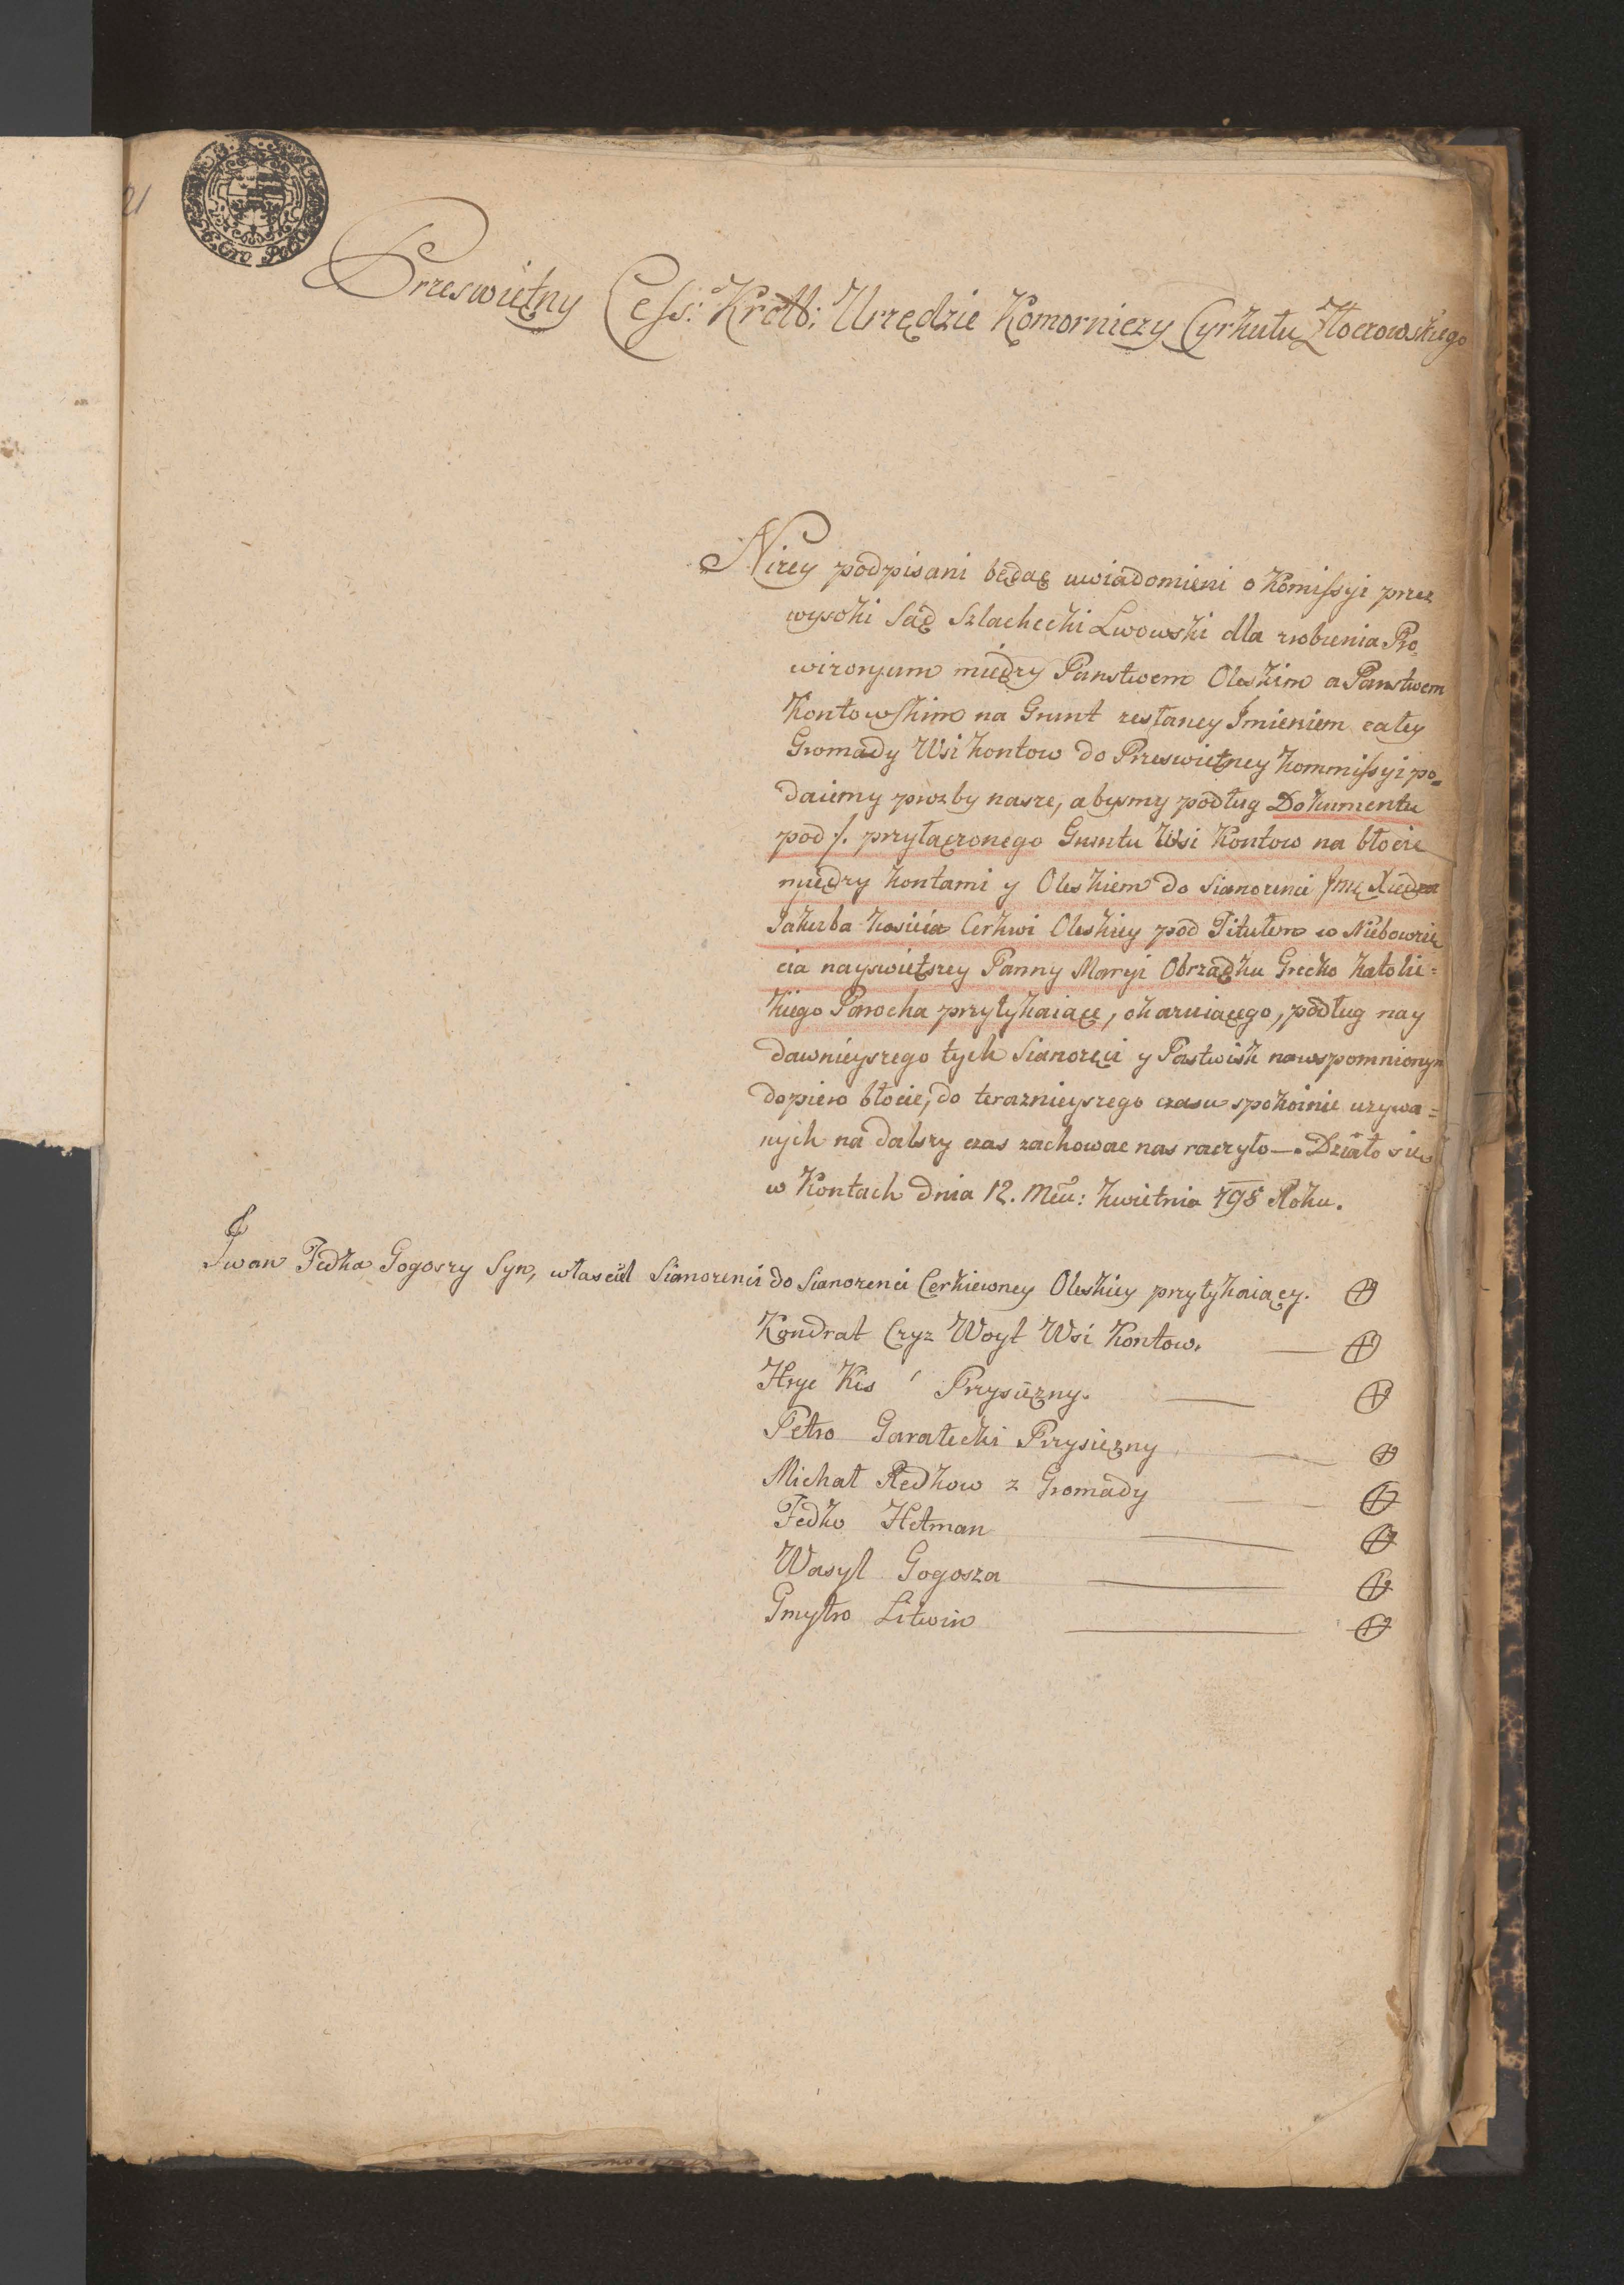 21
6. Cro Po
Przeswietny Cess: Królb: Urzędzie Komorniczy Cyrkułu Złoczowskiego
Nizey podpisani będąc uwiadomieni o Komissyi przez
wysoki Sąd Szlachecki Lwowski dla zrobienia Pro
wizoryum między Panstwem Oleskim a Panstwem
Kontowskim na Grunt zesłaney Jmieniem całey
Gromady Wsi Kontow do Przeswietney Kommissyi po=
daiemy prozby nasze, abysmy podług Dokumentu
pod /. przyłączonego Gruntu Wsi Kontow na błocie
między Kontami y Oleskiem do Sianozenci Jmć Xiędza
Jakuba Kosicia Cerkwi Oleskiey pod Titułem w Niebowzię
cia nayswiętszey Panny Maryi Obrządku Grecko Katolic=
kiego Parocha przytykaiące, okazuiącego, podług nay
dawnieyszego tych Sianozęci y Pastwisk na wspomnionym
dopiero błocie, do teraznieyszego czasu spokoinie uzywa=
nych na dalszy czas zachowac nas raczyło—. Działo sie
w Kontach dnia 12. Mca: Kwietnia 798 Roku.
Jwan Fedka Gogoszy Syn, włascicil Sianozenci do Sianozenci Cerkiewney Oleskiey przytykaiący. +
Kondrat Czyz Woyt Wsi Kontow. — +
Hryc Kis Przysiężny. — +
Petro Garatecki Przysiężny — +
Michał Redkow z Gromady — +
Fedko Hetman — +
Wasyl Gogosza — +
Gmytro Litwin — +